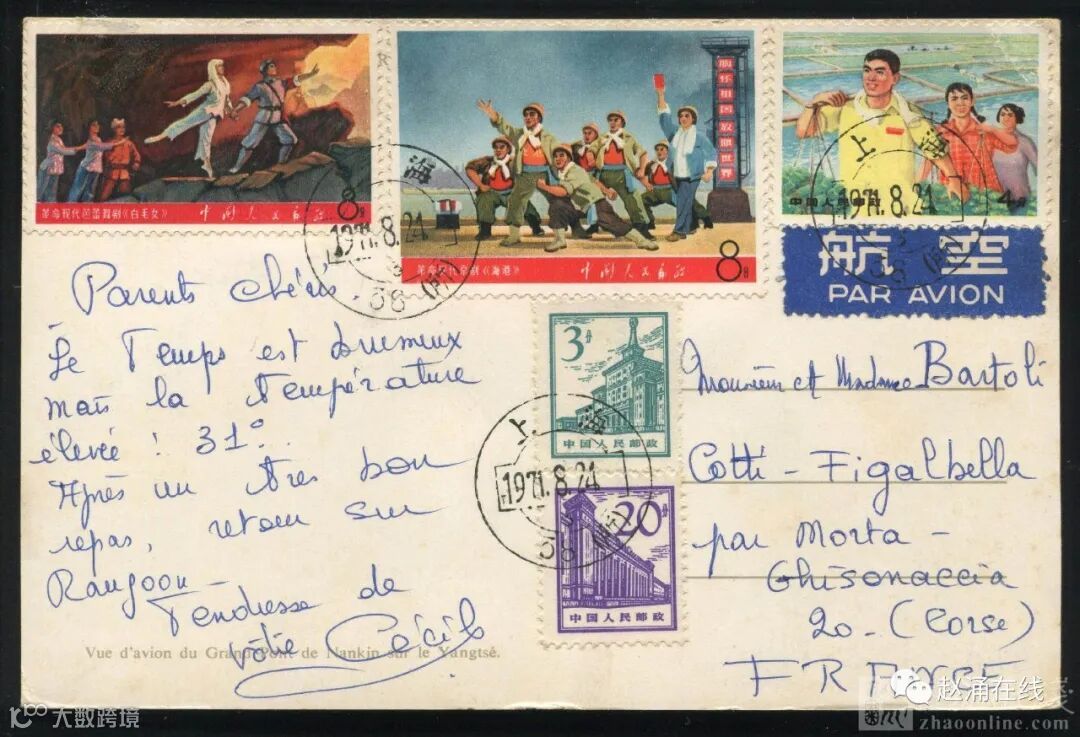 革命现代芭蕾舞剧《白毛女》 中国人民邮政 8分
胸怀祖国 放眼世界
革命现代京剧《海港》 中国人民邮政 8分
中国人民邮政 4分
上海
1971.8.24
上海
1971.8.24
航空
PAR AVION
Parents chéris
Le Temps est brumeux
mais la température
élevée : 31°.
Après un très bon
repas, retour sur
Rangoon -
Tendresse de
votre Cécile
Vue d'avion du Grand Pont de Nankin sur le Yangtsé.
3分
中国人民邮政
上海
1971.8.24
58
20分
中国人民邮政
Monsieur et Madame Bartoli
Cotti - Figalbella
par Morta -
Ghisonaccia
20 - (Corse)
FRANCE
赵涌在线
zhaoonline.com
大数跨境